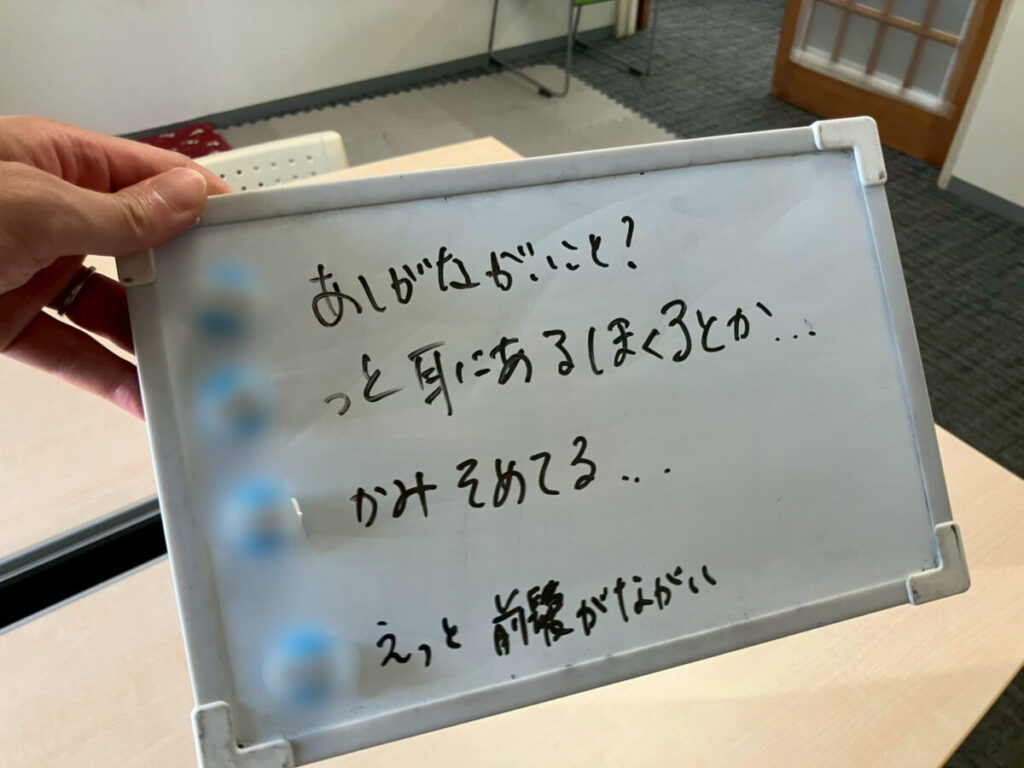 あしがながいこと?
っと耳にあるほくろとか...
かみそめてる...
えっと前髪がながい